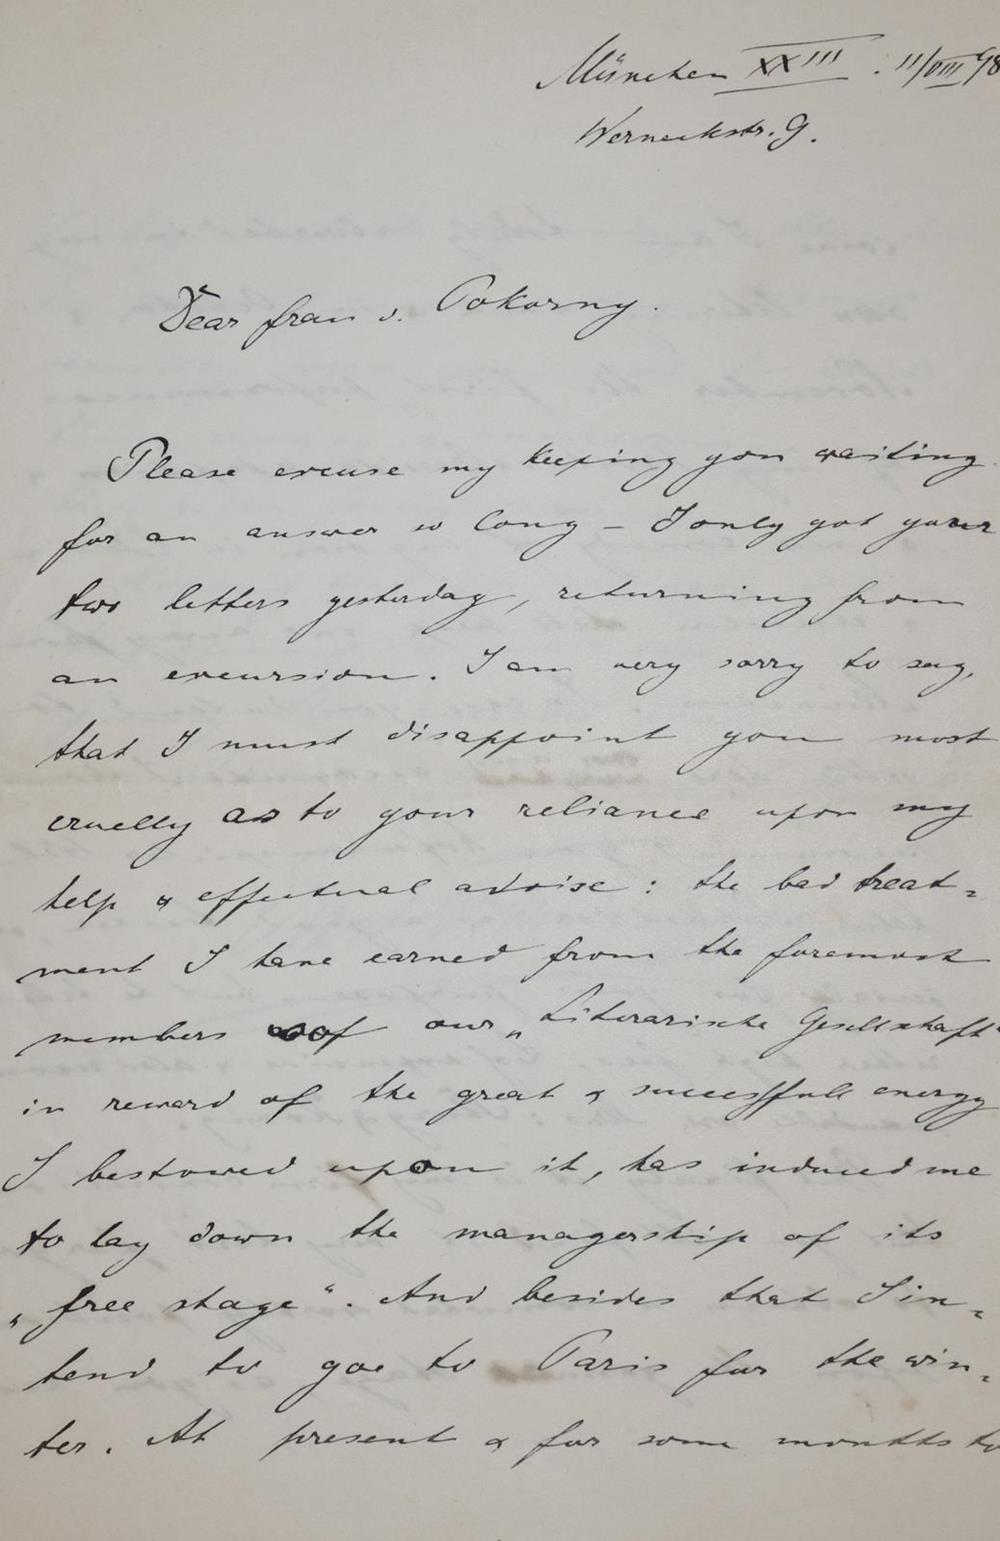 München XXIII. 11/VIII 98
Werneckstr. 9.
Dear frau v. Pokorny.
Please excuse my keeping you waiting
for an answer so long – I only got your
two letters yesterday, returning from
an excursion. I am very sorry to say,
that I must disappoint you most
cruelly as to your reliance upon my
help & effectual advise: the bad treat=
ment I have earned from the foremost
members of our „Literarische Gesellschaft“
in reward of the great & successfull energy
I bestowed upon it, has induced me
to lay down the managership of its
„free stage“. And besides that I in=
tend to goe to Paris for the win=
ter. At present & for some months to